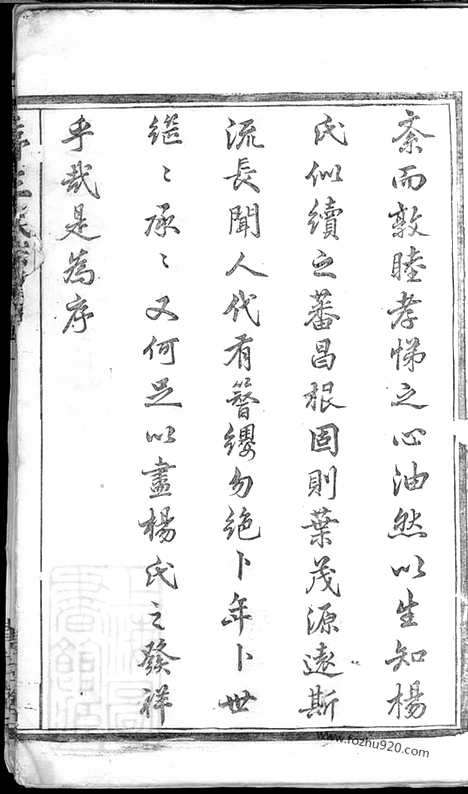 紊而敦睦孝悌之心油然以生知楊
氏似續之蕃昌根固則葉茂源遠斯
流長聞人代有簪纓勿絶卜年卜世
繼〻承〻又何足以盡楊氏之發祥
乎哉是為序
www.fozhu920.com